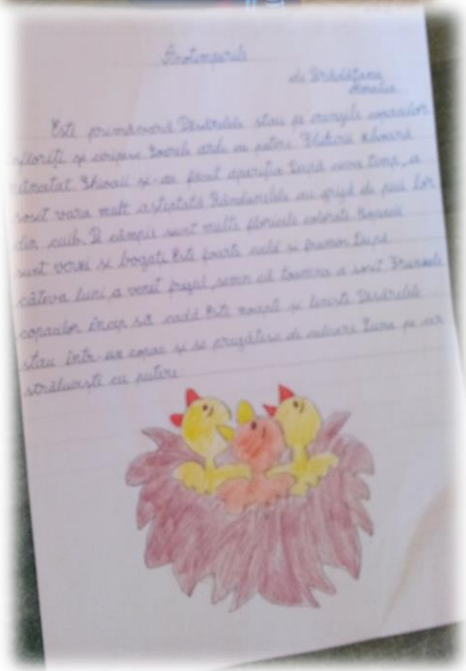 Anotimpurile
de Brădățanu
Amalia
Este primăvară Păsărelele stau pe crengile copacilor
înfloriți și ciripesc Soarele arde cu putere Fluturii zboară
neîncetat Ghiocii și-au făcut apariția După ceva timp, a
sosit vara mult așteptată Rândunelele au grijă de puii lor
din cuib. Pe câmpie sunt multe floricele colorate Copacii
sunt verzi și bogați Este foarte cald și frumos După
câteva luni a venit frigul, semn că toamna a sosit Frunzele
copacilor încep să cadă Este noapte și liniște Păsărelele
stau într-un copac și se pregătesc de culcare Luna pe cer
strălucește cu putere